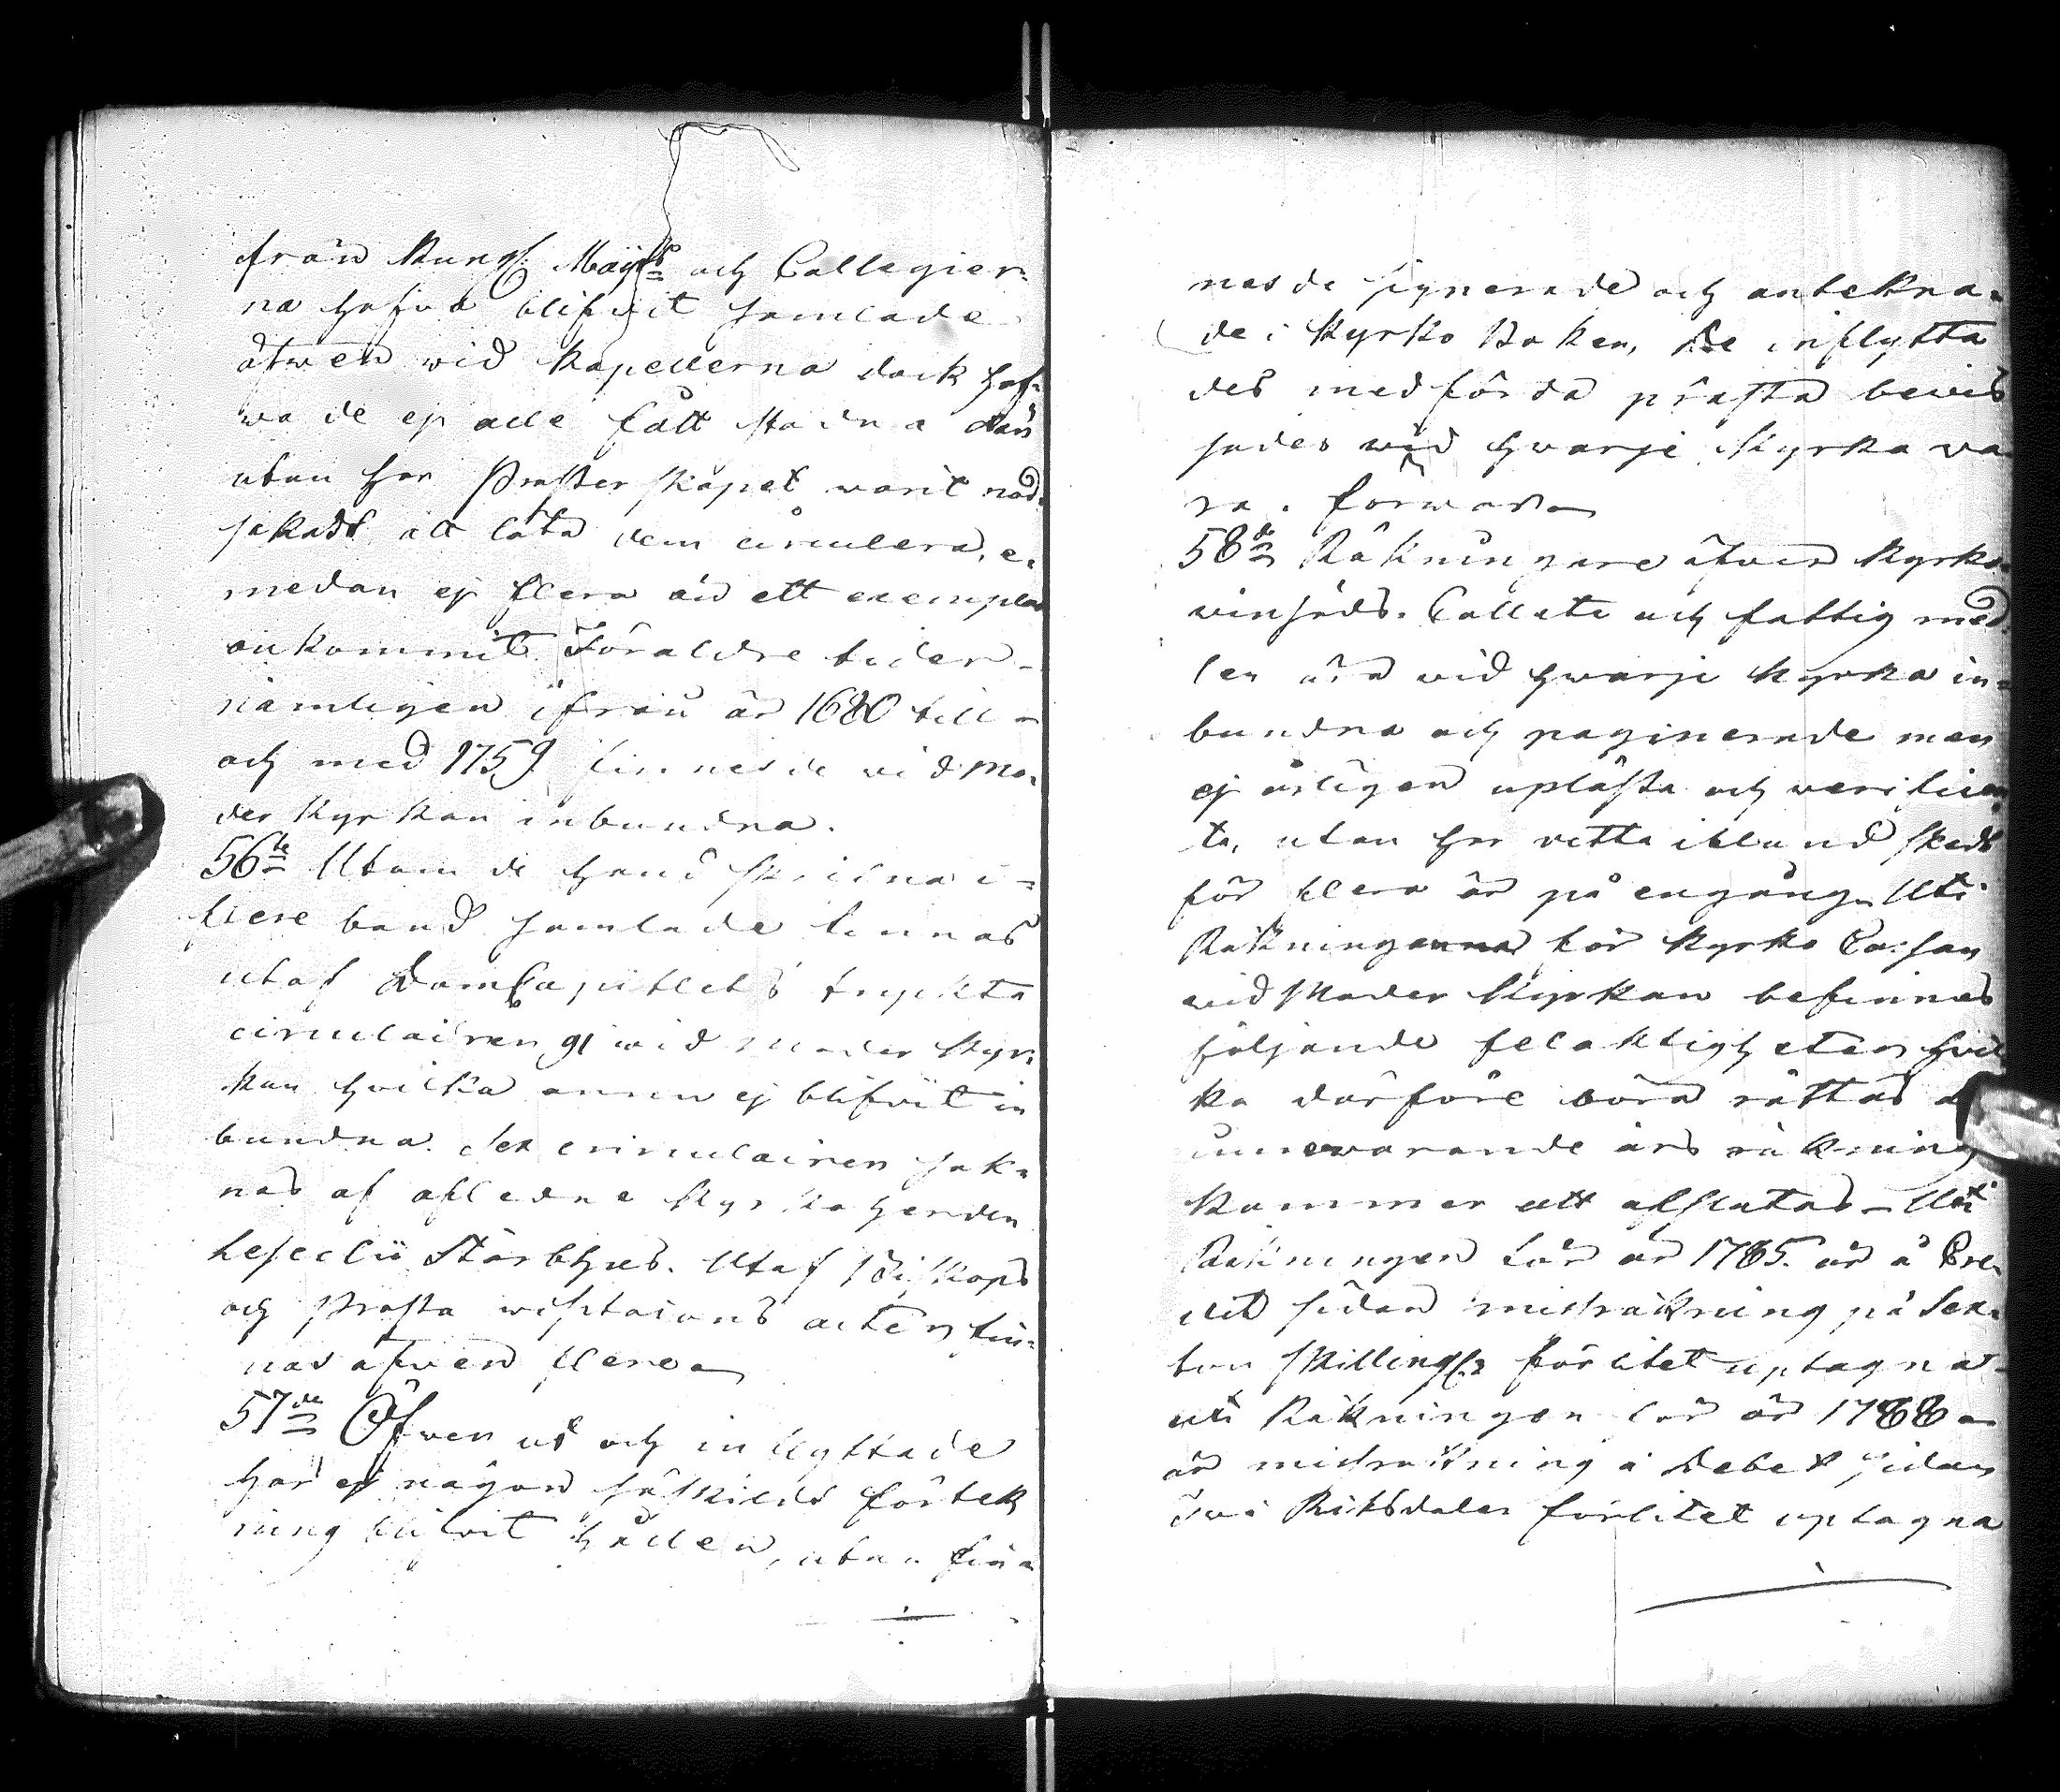 från Kungl: Maÿts och Collegier-
na hafwa blifvit samlade
äfwen wid Kapellerna dock haf-
wa de ej alle fått stadna där
utan har Prästerskapet warit nöd-
sakadt att låta dem circulera, e-
medan ej flera än ett exemplar
ankommit. För äldre tider-
nämligen ifrån år 1680 till-
och med 1759 finnes de wid Mo-
der Kyrkan inbundna.
56te Utom de handskrifna i-
flere band samlade finnas
utaf DomCapitlets tryckta
circulairen 91 wid Moder Kyr-
kan hwilka ännu ej blifvit in
bundna. Sex circulairen sak-
nas af afledne Kyrkoherden
Stärbhus. Utaf Biskops
och Prosta wisitaions acter fin-
nas äfwen flere
57de Öfwer ut och inflyttade
har ej någon särskild förtek
ning blifwit hållen, utan fin-
nas de signerade och antekna-
de i Kyrko Boken, De inflytta
des medförda prästa bewis
sades wid hwarje Kyrka wa
ra i förwar
58de Räkningarne öfwer Kyrko-
winsäds. Collecte och fattig med-
len äro wid hwarje Kyrka in-
bundna och paginerade men
ej årligen uplästa och verificera
ta, utan har detta ibland skedt
för flera år på en gång. Uti
Räkningarna för Kyrko Cassan
wid Moder Kyrkan befinnes
följande felaktigheter hwil
ka därföre böra rättas
innewarande års räkning
kommer att afslutas - Uti
Räkningen för år 1785. är å Cre-
dit sidan missräkning på Sex-
ton Skillingar för litet uptagna-
uti Räkningen för år 1788 -
är missräkning å Debet sidan
två Riksdaler förlitet uptagna